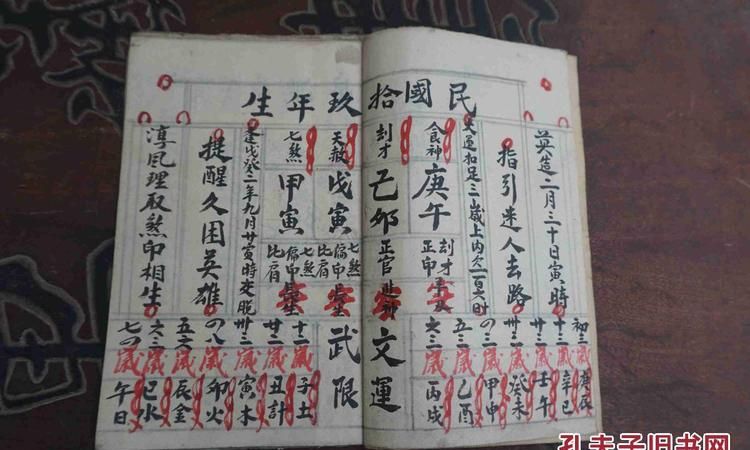 民國拾玖年生
英造二月三十日寅時
指引迷人去路
大運扣足三歲上內欠一百六時
食神
庚午
刦才
正印
刦才
己卯
正官
文運
天赦
戊寅
七煞
偏印
比肩
武限
七煞
甲寅
七煞
偏印
比肩
逢戊癸二年九月廿寅時交脫
提醒久困英雄
淳風理取煞印相生
初三歲庚辰
十三歲辛巳
廿三歲壬午
卅三歲癸未
四三歲甲申
五三歲乙酉
六三歲丙戌
十二歲子土
廿二歲丑計
卅三歲寅木
四八歲卯火
五六歲辰金
六三歲巳水
七四歲午日
孔夫子旧书网